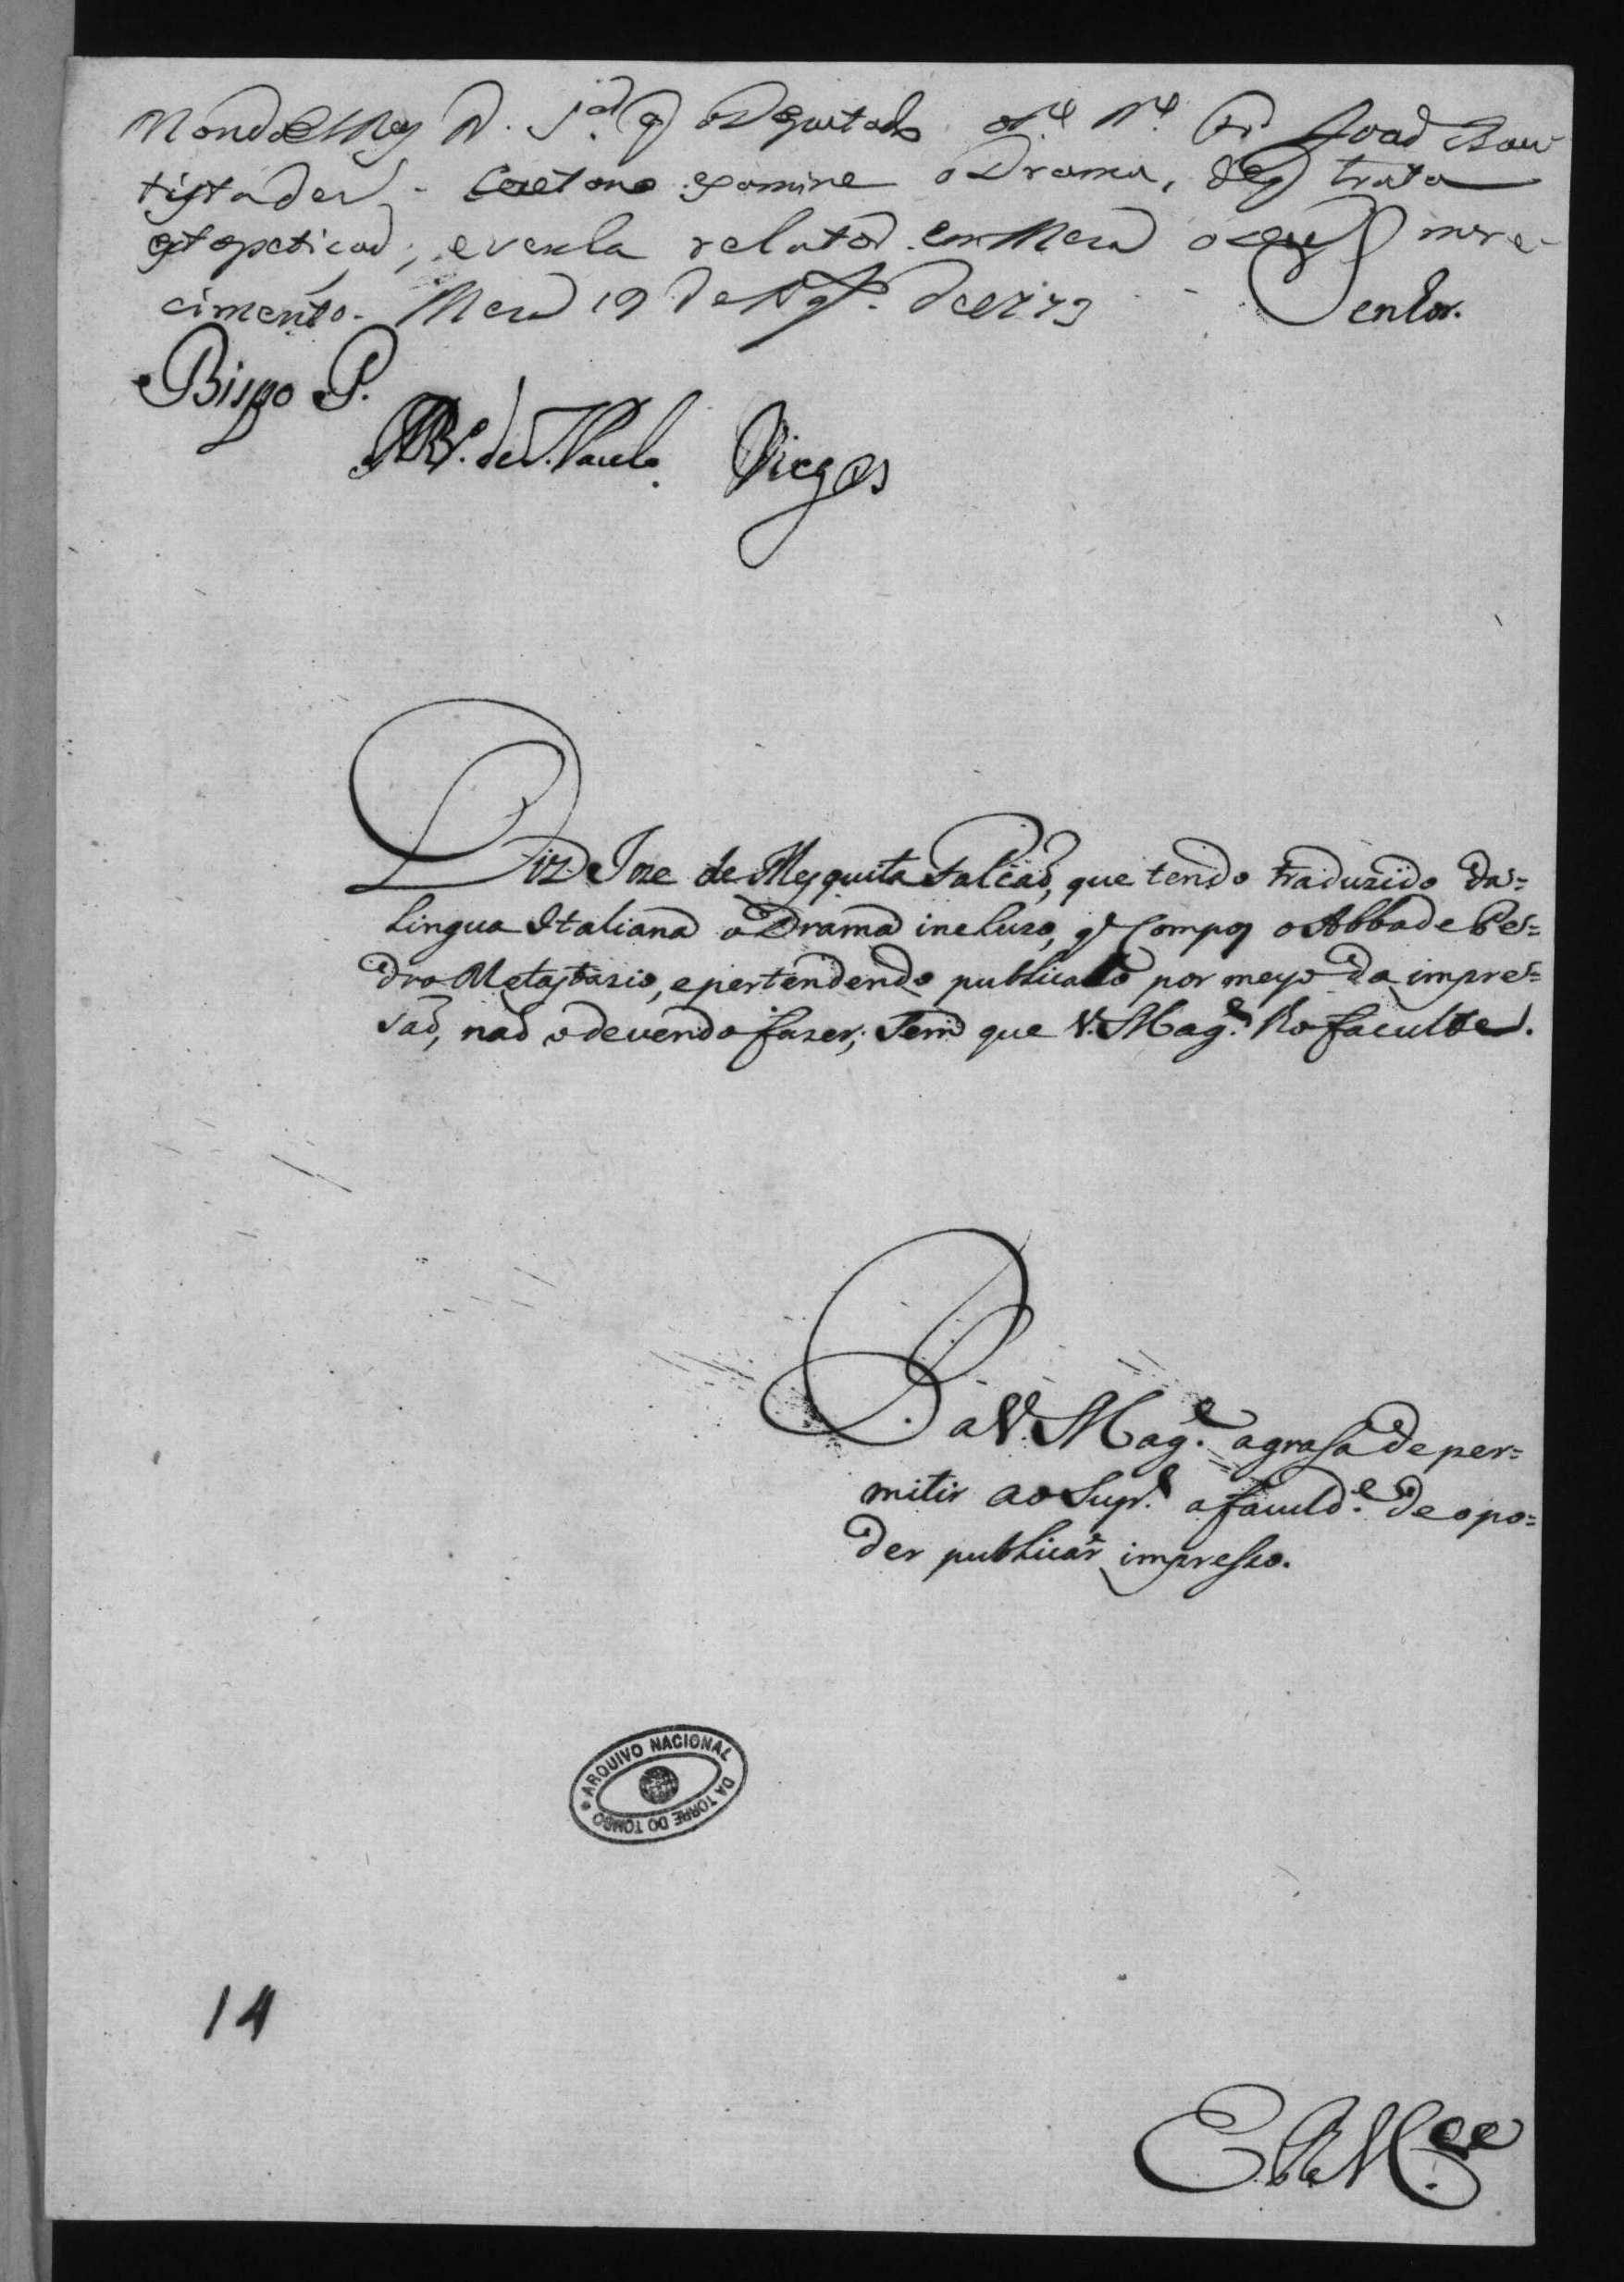 Manda ElRey N. S.or q̃ o Deputado o P.e M.e Fr. Joaõ Bau
tista de S. Caetano examine o Drama, de q̃ trata
esta petiçaõ, e venha relatar em Meza o seu mere-
cimento. Meza 19 de Ag.to de 1773
Senhor.
Bispo P.
de S. Paulo. Viegas
Diz Joze de Mesquita Falcaõ, que tendo traduzido da=
Lingua Italiana o Drama incluzo, q̃ compoz o Abbade Pe=
dro Metastazio, e pertendendo publicallo por meyo da impres=
saõ, naõ o devendo fazer, sem que V. Mag.e lho faculte.
P. a V. Mag.e a grasa de per=
mitir ao Sup.e a faculd.e de o po=
der publicar impresso.
ARQUIVO NACIONAL DA TORRE DO TOMBO
14
E. R. M.ce